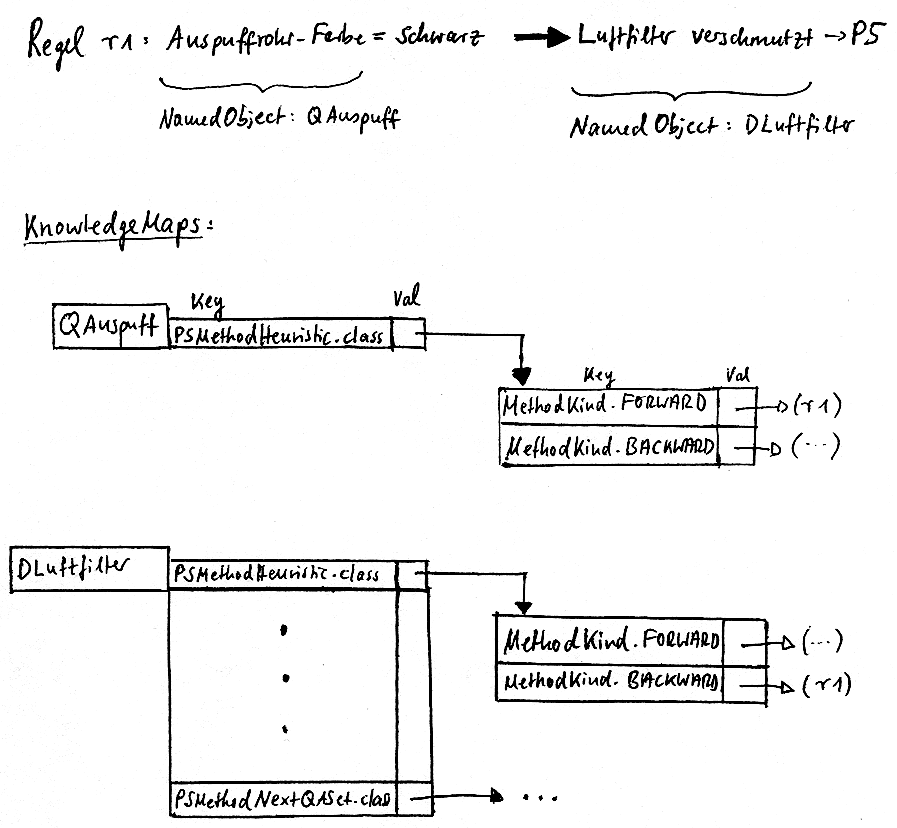 Regel r1: Auspuffrohr-Farbe = schwarz → Luftfilter verschmutzt → P5
NamedObject: QAuspuff
NamedObject: DLuftfilter
KnowledgeMaps:
Key Val
QAuspuff PSMethodHeuristic.class
Key Val
MethodKind.FORWARD (r1)
MethodKind.BACKWARD (...)
DLuftfilter PSMethodHeuristic.class
MethodKind.FORWARD (...)
MethodKind.BACKWARD (r1)
PSMethodNextQASet.clas ...